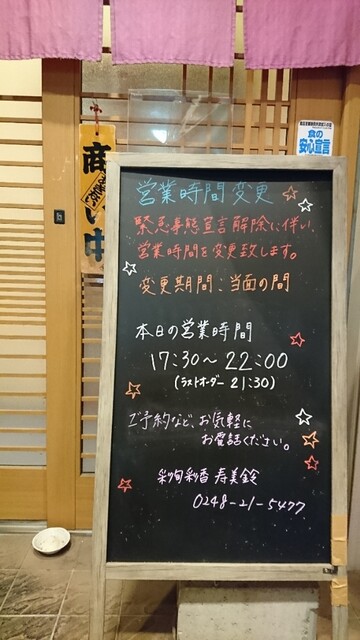 営業時間変更
緊急事態宣言解除に伴い、
営業時間を変更致します。
変更期間：当面の間
本日の営業時間
17:30〜22:00
(ラストオーダー 21:30)
ご予約など、お気軽に
お電話ください。
彩旬彩香 寿美鈴
0248-21-5477
食の
安心宣言
商い中